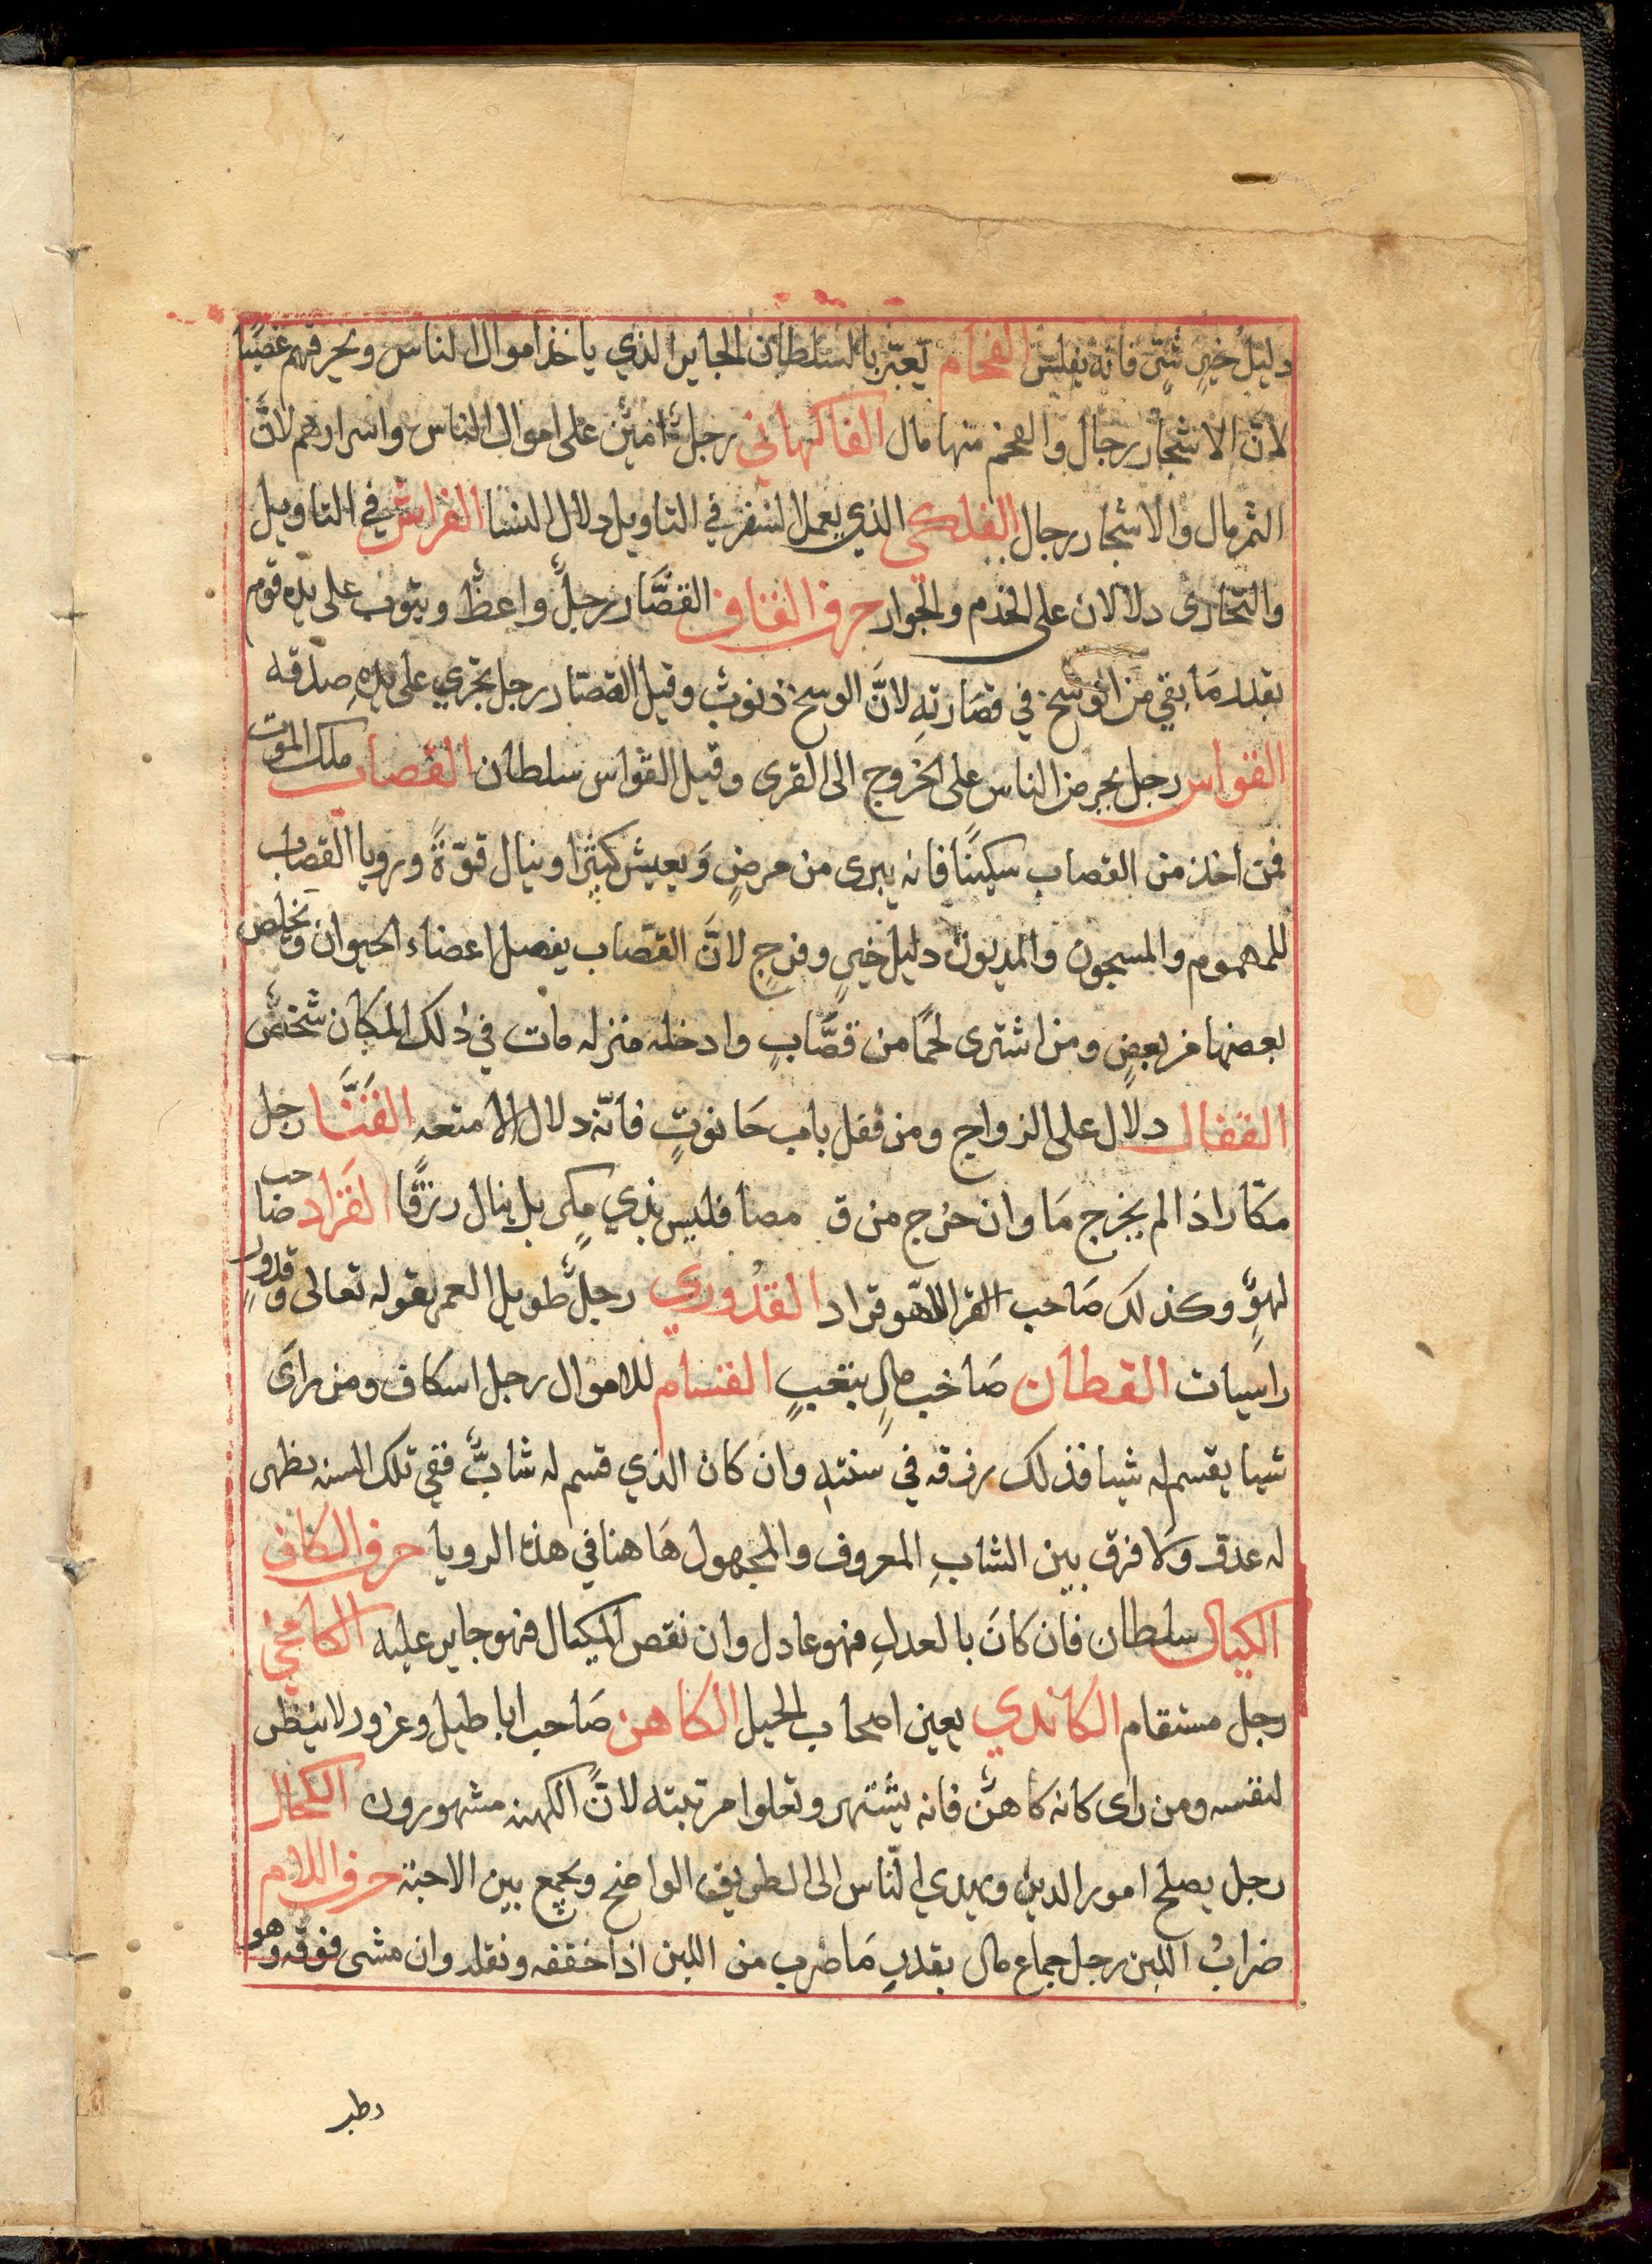 دليل خير شتى فانه يفلس الفحام يعبّر بالسلطان الجاير الذي ياخذ اموال الناس ويحرقهم غضبًا
لانّ الاشجار رجال والفحم منها مال الفاكهاني رجل امين على اموال الناس واسرارهم لانّ
الثمر مال والاشجار رجال الفلكي الذي يعمل السفر في التاويل دلال النسا الفراش في التاويل
والتخارى دلالان على الخدم والجوار حرف القاف القصّار رجل واعظ ويتوب على يده قوم
بقدر مَا بقي من الوسخ في قصَارتهِ لانَّ الوسخ ذنوب وقيل القصّار رجل تجري على يدهِ صدقه
القواس رجل يحرض الناس على الخروج الى القرى وقيل القوّاس سلطان القصاب ملك الموت
فمن اخذ من القصاب سكينًا فانه يبرى من مرضٍ وَيعيش كثيرًا وينال قوّةً ورويا القصاب
للمهموم والمسجون والمديون دليل خيرٍ وفرجٍ لانَّ القصّاب يفصل اعضاء الحيوان ويخلص
بعضها من بعضٍ ومن اشترى لحمًا من قصَّابٍ وادخله منزله مات في ذلك المكان شخص
القفال دلال على الزواج ومن قفل باب حَانوتٍ فانّه دلال الامتعه القنَّا رجل
مكّار اذا لم يخرج مَا وان خرج من ق مصا فليس بذي مكرٍ بل ينال رزقًا القرّاد صَاحب
لهوٍ وكذلك صَاحب القرد اللهو قراد القدوري رجلٌ طويل العمر لقوله تعالى وقدورٍ
راسيات القطان صَاحب مالٍ بتعبٍ القسام للاموال رجل اسكاف ومن راَى
شيا يقسم له شيا فذلك رزقه في سنتهِ وان كان الذي قسم له شابٌّ ففي تلك السنه يظهر
له عدوّ وَلا فرق بين الشابِ المعروف والمجهول هَاهنا في هذه الرويا حرف الكاف
الكيال سلطان فان كَانَ بالعدلِ فهو عادل وان نقص المكيال فهو جاير عليه الكامخي
رجل مسقام الكاندي يعين اصحاب الحيل الكاهن صَاحب اباطيل وغرور لا ينظر
لنفسه ومن راى كانه كاهنٌ فانه يشتهر وتعلوا مرتبته لانّ الكهنه مشهورون الكحال
رجل يصلح امور الدين ويهدي النّاس الى الطريق الواضح ويجمع بين الاحبة حرف اللام
ضرابُ اللبن رجل جماع مال بقدرِ مَا ضرب من اللبن اذا خففه ونقله وان مشى فوقه وهو
رطب